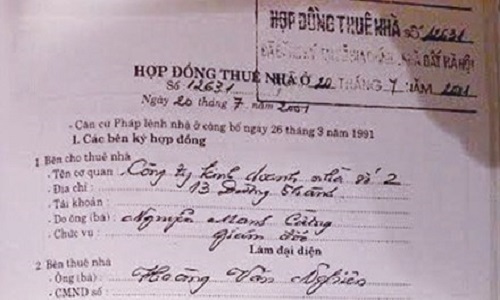 HỢP ĐỒNG THUÊ NHÀ Số 12631
NHÀ ĐẤT HÀ NỘI
20 THÁNG 7 NĂM 2001
HỢP ĐỒNG THUÊ NHÀ Ở
Số 12631
Ngày 20 tháng 7 năm 2001
- Căn cứ Pháp lệnh nhà ở công bố ngày 26 tháng 3 năm 1991
I. Các bên ký hợp đồng
1 Bên cho thuê nhà
- Tên cơ quan : Công ty kinh doanh nhà số 2
- Địa chỉ : 13 Đường Thành
- Tài khoản :
- Do ông (bà) : Nguyễn Mạnh Cường
- Chức vụ : giám đốc
Làm đại diện
2 Bên thuê nhà
- Ông (bà) : Hoàng Văn Nghiên
- CMND số :